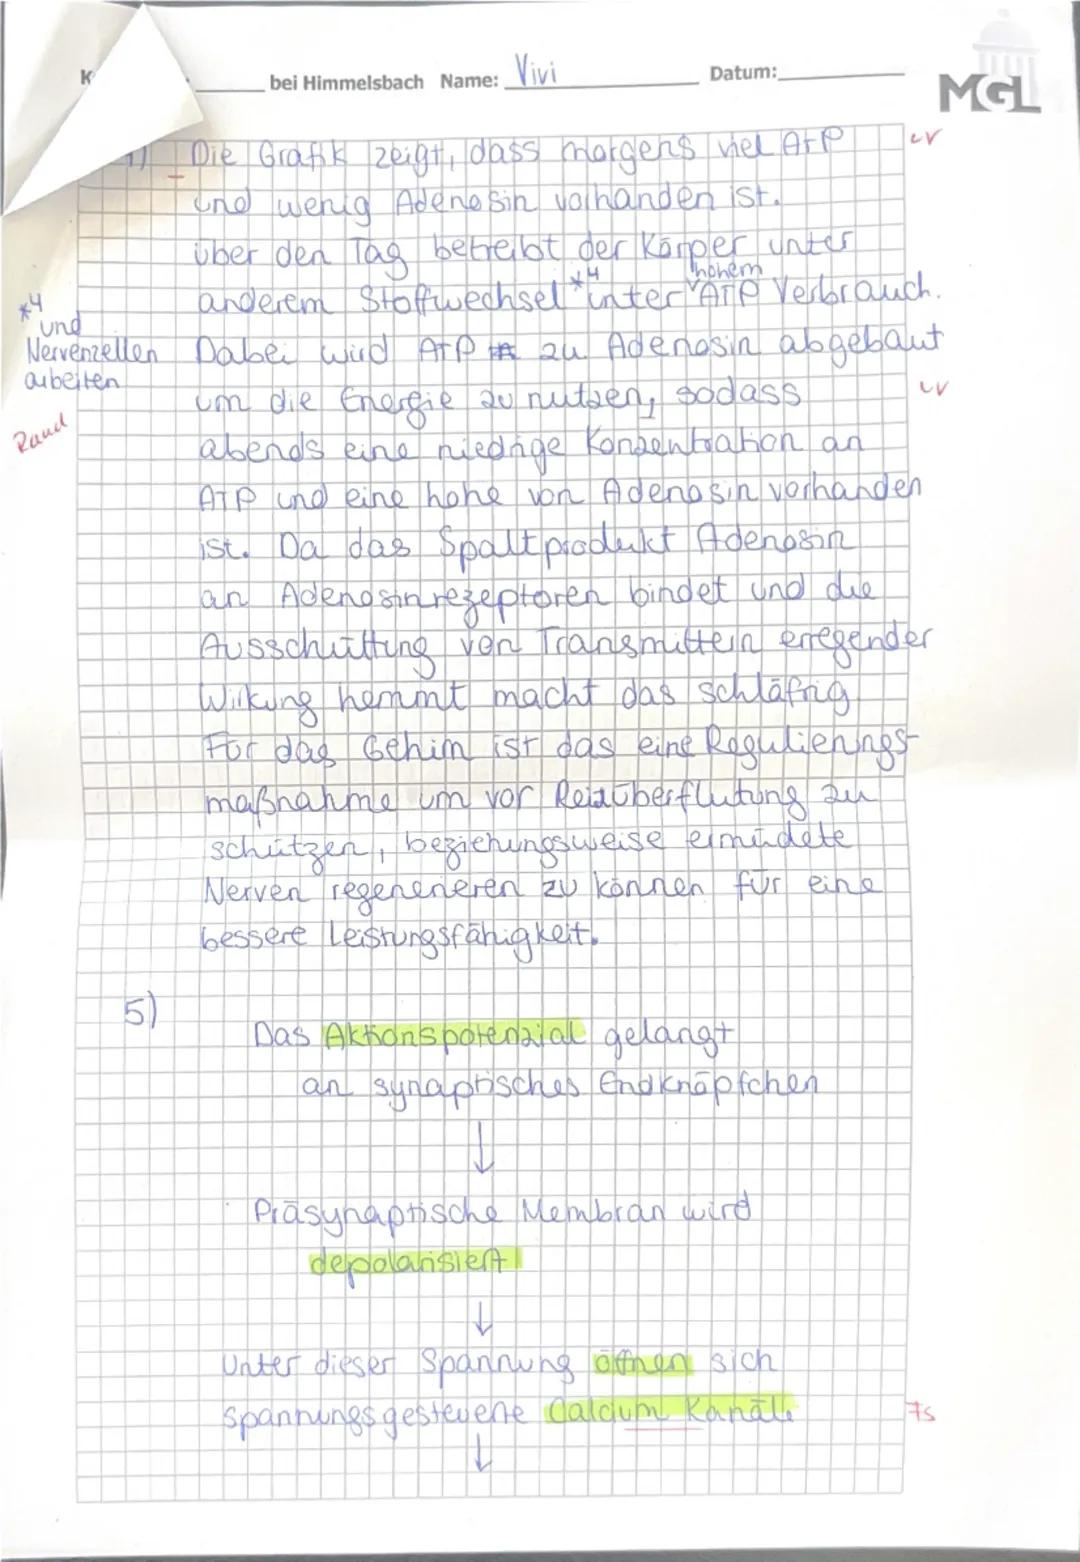 K
bei Himmelsbach Name: Vivi Datum:
MGL
1) Die Grafik zeigt, dass morgens viel ATP
und wenig Adenosin vorhanden ist.
über den Tag betreibt der Körper unter
anderem Stoffwechsel *4 unter hohem ATP Verbrauch.
*4 und
Nervenzellen
arbeiten
Dabei wird ATP zu Adenosin abgebaut
um die Energie zu nutzen, sodass
Rand
abends eine niedrige Konzentration an
ATP und eine hohe von Adenosin vorhanden
ist. Da das Spaltprodukt Adenosin
an Adenosinrezeptoren bindet und die
Ausschüttung von Transmittern erregender
Wirkung hemmt macht das schläfrig.
Für das Gehirn ist das eine Regulierungs-
maßnahme um vor Reizüberflutung zu
schützen, beziehungsweise ermüdete
Nerven regenerieren zu können für eine
bessere Leistungsfähigkeit.
5)
Das Aktionspotenzial gelangt
an synaptisches Endknöpfchen
↓
Präsynaptische Membran wird
depolarisiert
↓
Unter dieser Spannung öffnen sich
spannungsgesteuerte Calcium Kanäle
↓